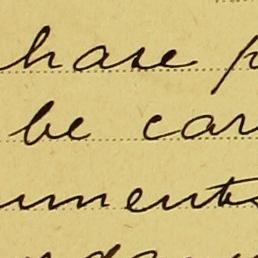 hase p
be car
uments